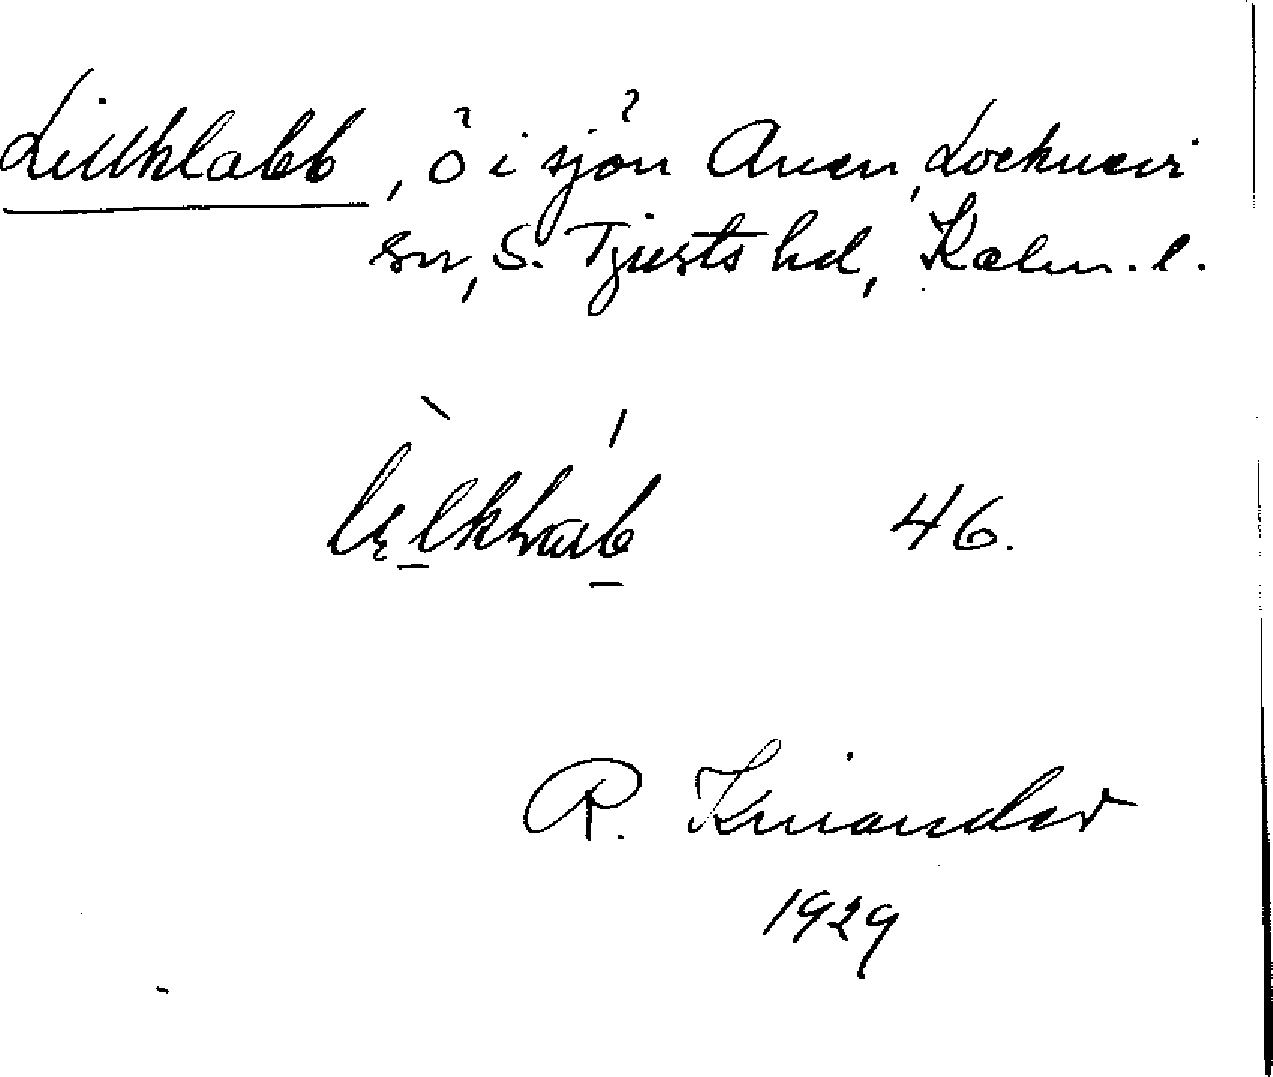 Lillklabb, ö i sjön Anen, Locknevi
sn, S. Tjusts hd, Kalm. l.
46.
R. Kinander
1929